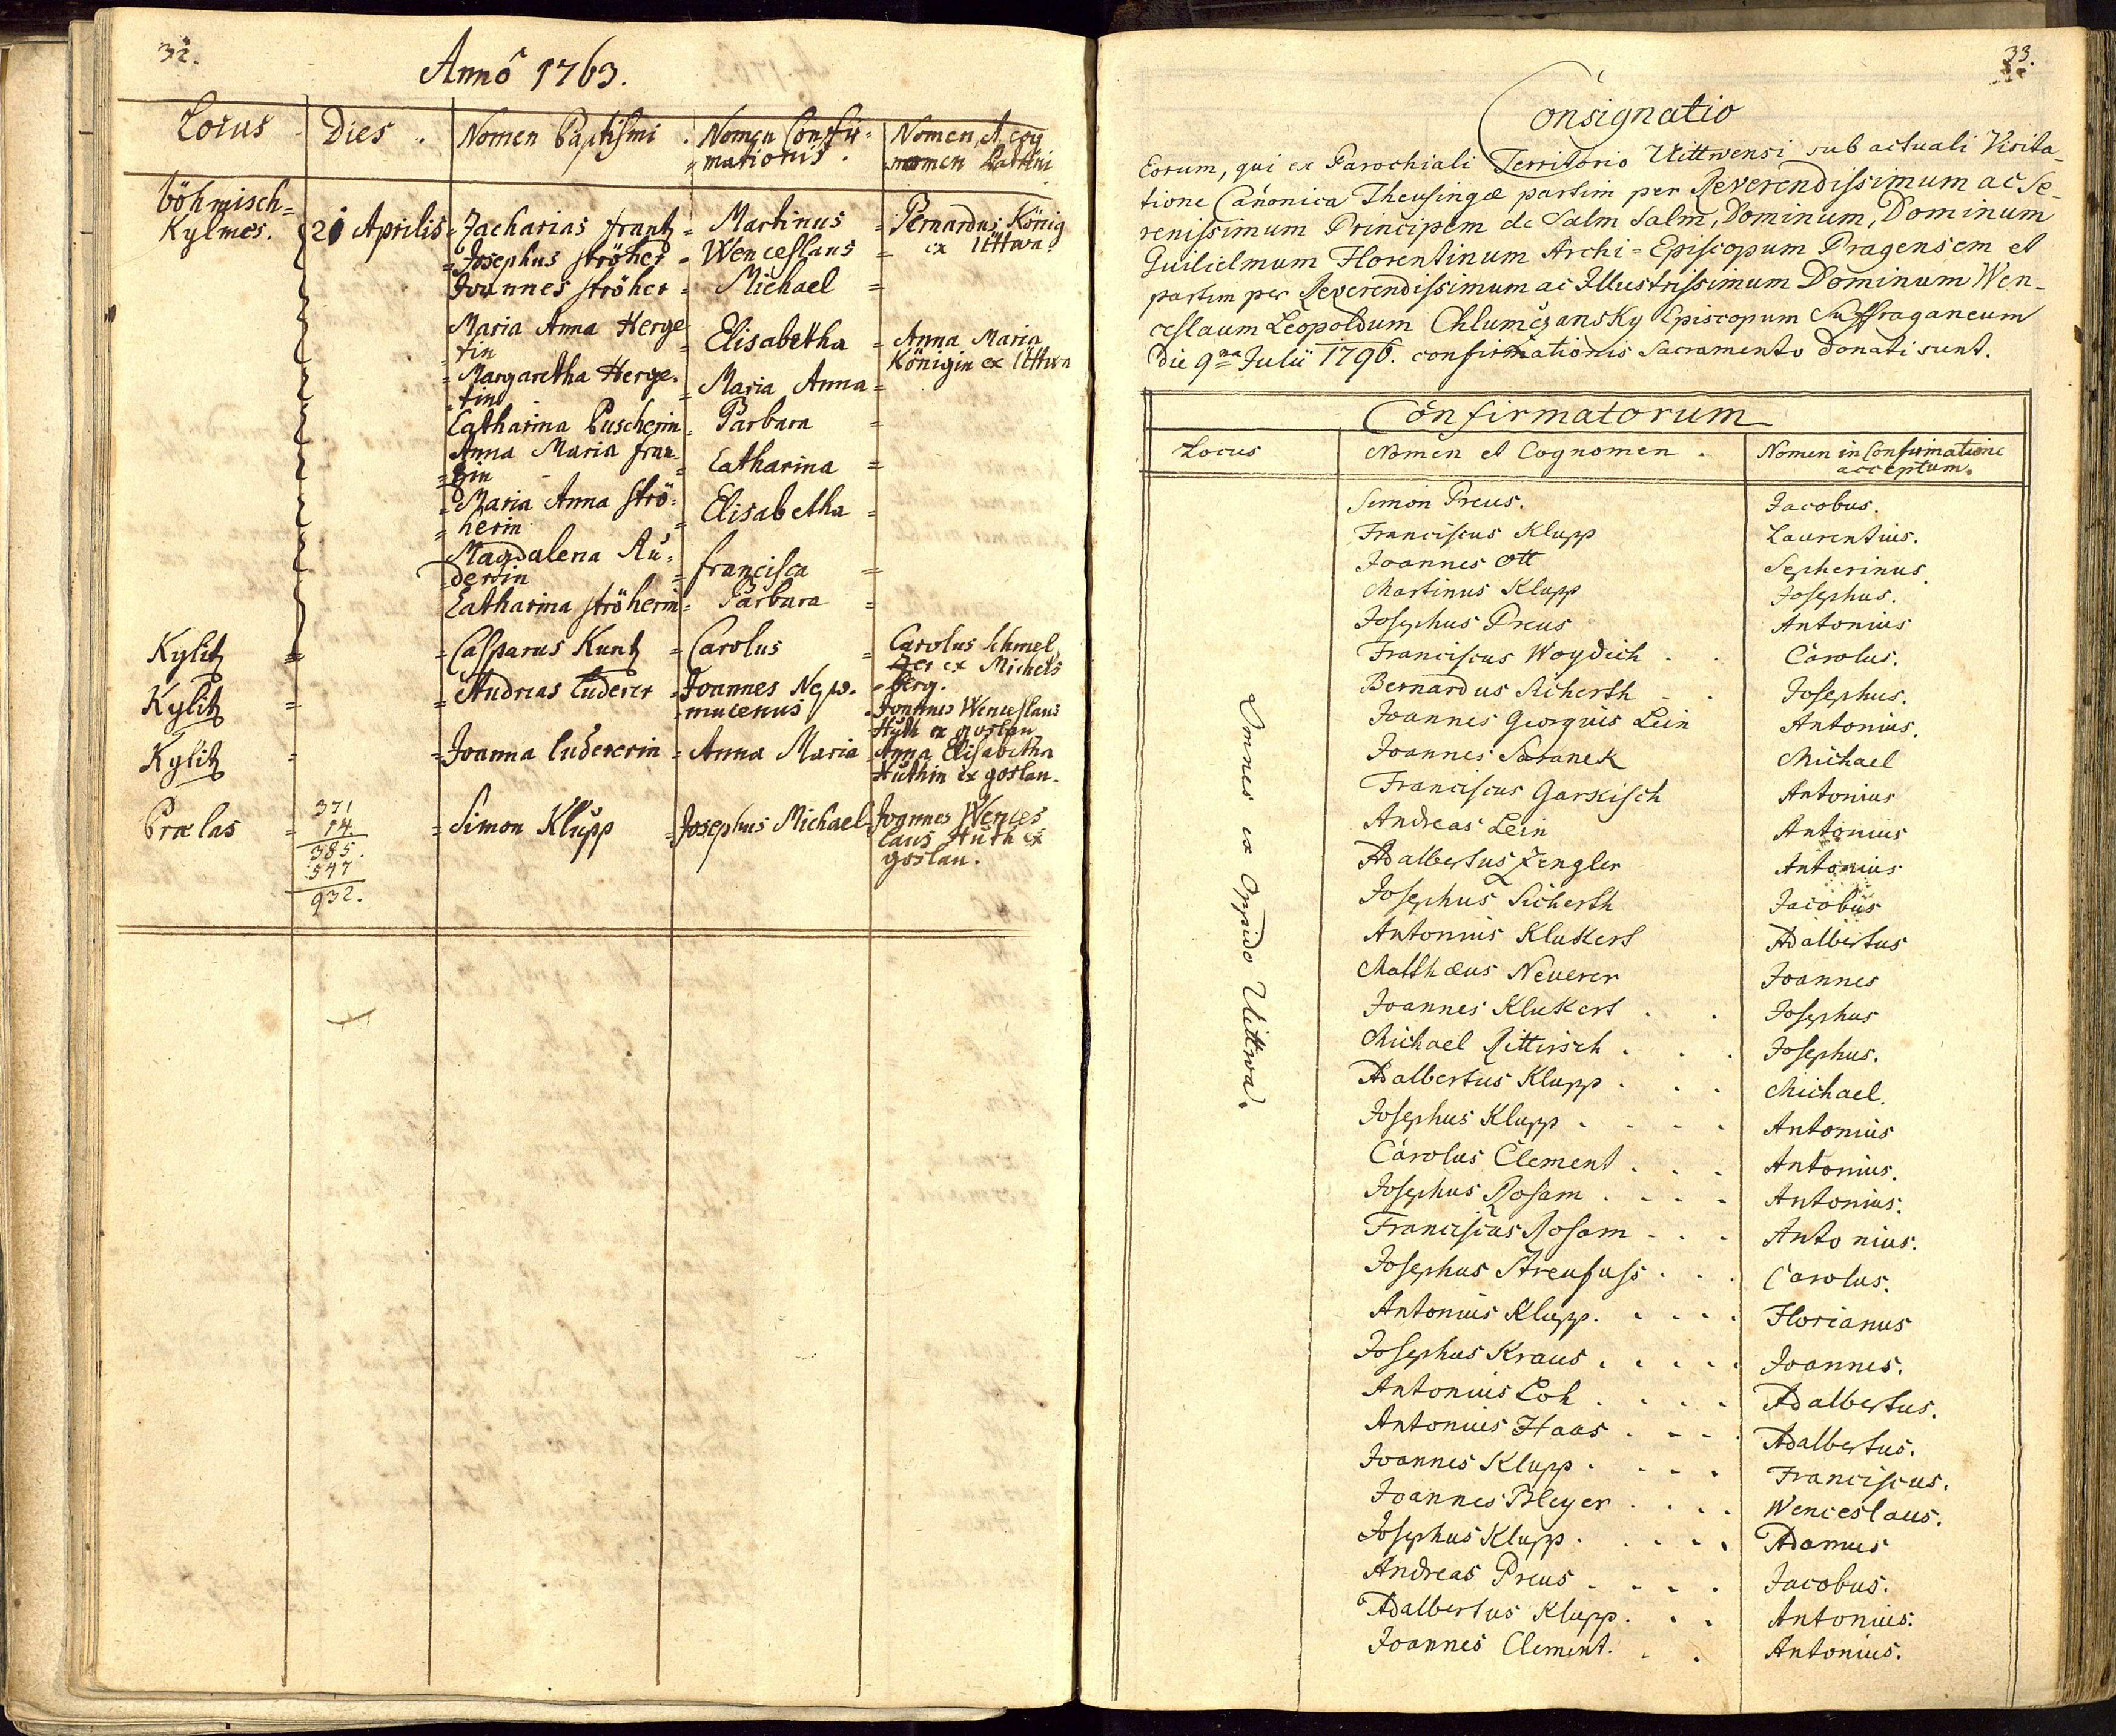 32.
Annô 1763.
Locus Dies. Nomen Baptismi. Nomen Confir= Nomen, & cog
=mationis. =nomen Patrini
böhmisch=
Kylmes. 21 Aprilis = Zacharias frantz = Martinus = Bernardus König
= Josephus ströher = Wenceslaus = ex Uttwa
Joannes ströher = Michael =
Maria Anna Herge
=tin = Elisabetha = Anna Maria
Königin ex Uttwa
= Margaretha Herge.
=tin = Maria Anna =
Catharina Puscherin Barbara =
Anna Maria fran=
=zin = Catharina =
= Maria Anna strö=
=herin = Elisabetha =
Magdalena
= francisca =
Catharina ströherin = Barbara =
Kylitz = = Casparus Kuntz = Carolus = Carolus schmel
zer ex Michels
=berg.
Kylitz = = Andreas luderer = Joannes Nepo. Joannes Wenceslaus
=mucenus Huth ex goslau
Kylitz = = Joanna ludererin = Anna Maria Anna Elisabetha
Huthin ex goslau.
Prælas = = Simon Klupp = Josephus Michael Joannes Wences
laus Huth ex
goslau.
371
14.
385.
547
932.
33.
Consignatio
Eorum, qui ex Parochiali Territorio Uittwensi sub actuali Visita=
tione Canonica Theusingæ partim per Reverendissimum ac Se=
renissimum Principem de Salm Salm, Dominum, Dominum
Guilielmum Florentinum Archi=Episcopum Pragensem et
partim per Reverendissimum ac Illustrissimum Dominum Wen=
ceslaum Leopoldum Chlumčzansky Episcopum Suffraganeum
Die 9na Julii 1796. confirmationis Sacramento donati sunt.
Confirmatorum
Locus Nomen et Cognomen. Nomen in Confirmatione
acceptum.
Omnes ex Oppido Uittwa.
Simon Preus. Jacobus.
Franciscus Klupp Laurentius.
Joannes Ott Sepherinus.
Martinus Klupp Josephus.
Josephus Preus Antonius
Franciscus Woydich . . Carolus.
Bernardus Sicherth . . Josephus.
Joannes Georgius Lein Antonius.
Joannes Satanek Michael
Franciscus Garkisch Antonius
Andreas Lein Antonius
Adalbertus Zengler Antonius
Josephus Sicherth Jacobus
Antonius Klukert Adalbertus
Matthæus Neuerer Joannes
Joannes Klukert . . Josephus
Michael Rittirsch . . . Josephus.
Adalbertus Klupp . . . Michael.
Josephus Klupp . . . . Antonius
Carolus Clement . . . Antonius.
Josephus Rosam . . . . Antonius.
Franciscus Rosam . . . Antonius.
Josephus Streufuss . . . Carolus.
Antonius Klupp. . . . . Florianus
Josephus Kraus . . . . . Joannes.
Antonius Loh . . . . Adalbertus.
Antonius Haas . . . Adalbertus.
Joannes Klupp . . . . Franciscus.
Joannes Bleyer . . . . Wenceslaus.
Josephus Klupp . . . . . Adamus
Andreas Preus . . . . Jacobus.
Adalbertus Klupp. . . Antonius.
Joannes Clement. . . Antonius.